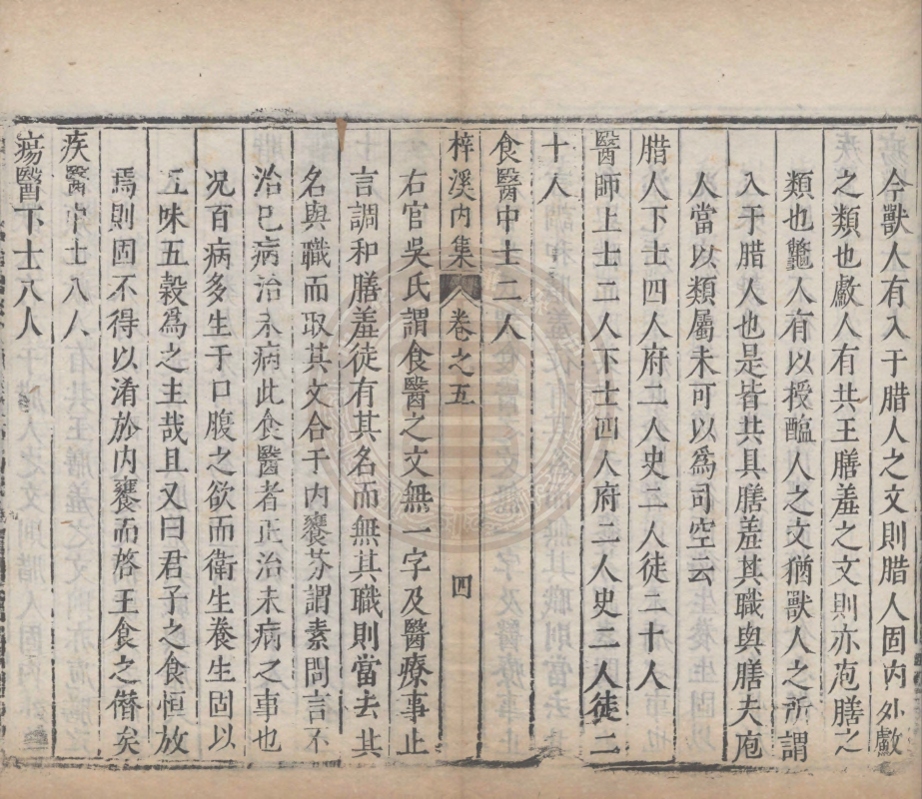 今獸人有入于腊人之文則腊人固內外𩼪
之類也𩼪人有共王膳羞之文則亦庖膳之
類也鼈人有以授醢人之文猶獸人之所謂
入于腊人也是皆共具膳羞其職與膳夫庖
人當以類屬未可以爲司空云
腊人下士四人府二人史二人徒二十人
醫師上士二人下士四人府二人史二人徒二
十人
食醫中士二人
梓溪內集 卷之五 四
右官吳氏謂食醫之文無一字及醫療事止
言調和膳羞徒有其名而無其職則當去其
名與職而取其文合于內饔芬謂素問言不
治已病治未病此食醫者正治未病之事也
況百病多生于口腹之欲而衛生養生固以
五味五穀爲之主哉且又曰君子之食恒放
焉則固不得以淆於內饔而啓王食之僭矣
疾醫中士八人
瘍醫下士八人